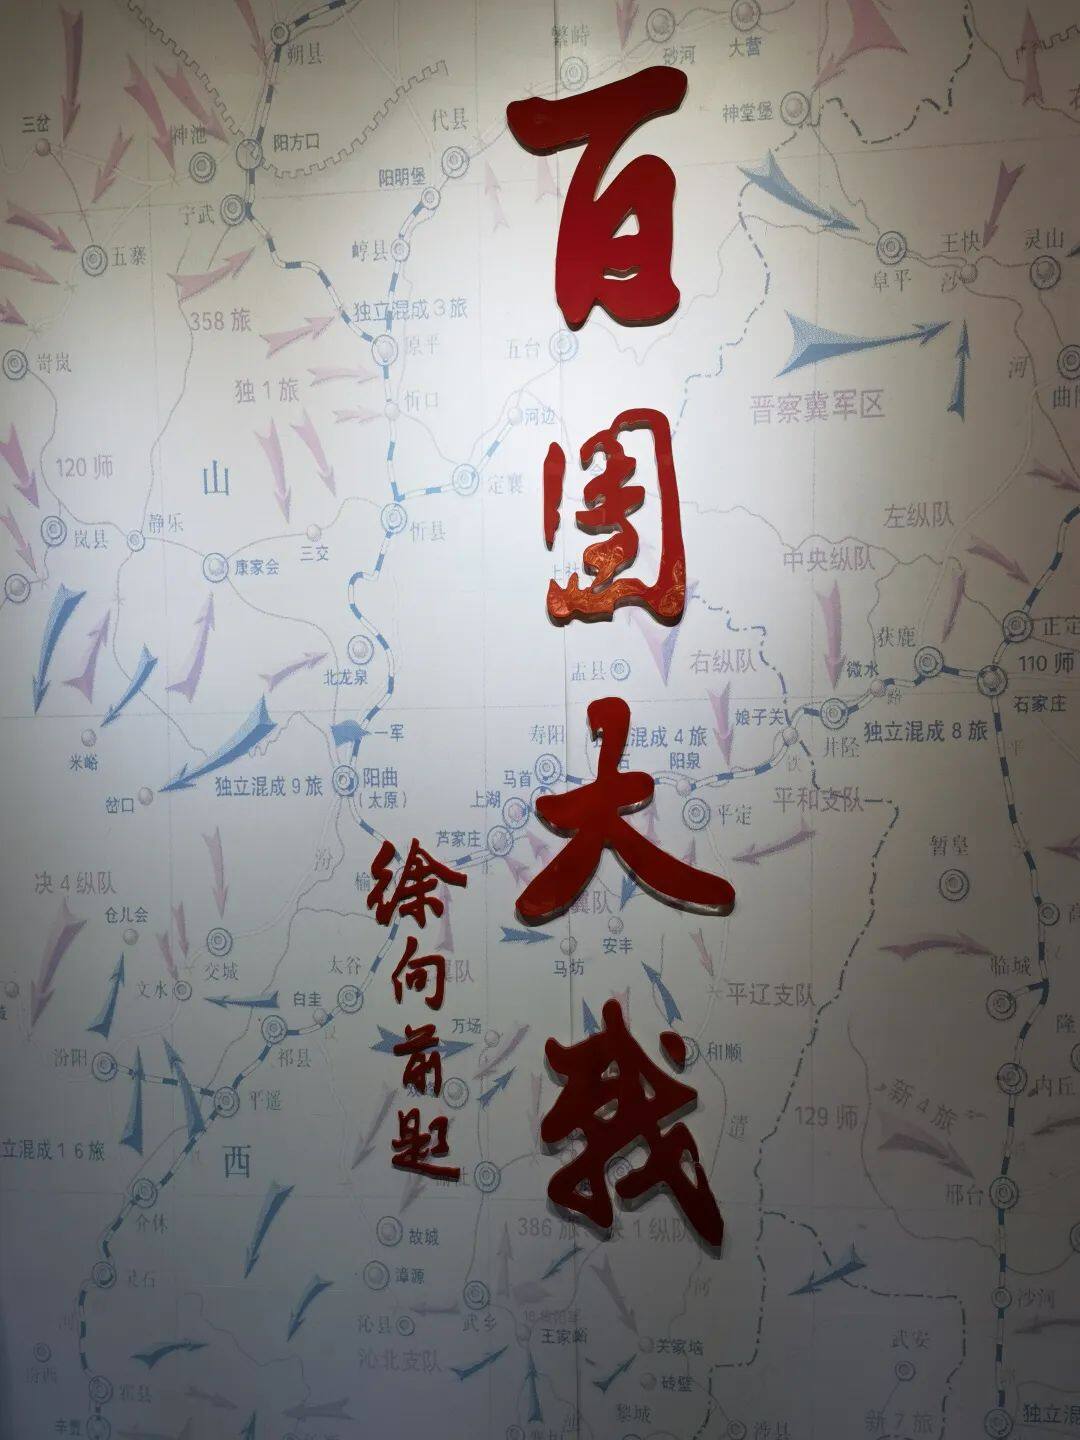 百团大战
徐向前题
繁峙
砂河
大营
朔县
三岔
神池
阳方口
代县
神堂堡
阳明堡
宁武
五寨
崞县
王快
灵山
阜平
沙
358旅
独立混成3旅
原平
五台
岢岚
河
独1旅
忻口
河边
晋察冀军区
120师
山
定襄
左纵队
岚县
静乐
忻县
三交
康家会
中央纵队
获鹿
正定
右纵队
盂县
微水
110师
北龙泉
石家庄
娘子关
米峪
一军
寿阳
独立混成4旅
井陉
独立混成8旅
阳泉
岔口
独立混成9旅
阳曲
(太原)
马首
上湖
平定
平和支队
芦家庄
汾
暂皇
决4纵队
仓儿会
安丰
交城
太谷
马坊
临城
文水
白圭
平辽支队
万场
隆
汾阳
祁县
和顺
内丘
平遥
129师
新4旅
清
独立混成16旅
西
邢台
介休
386旅
决1纵队
故城
漳源
灵石
沁县
武乡
沙河
王家峪
关家垴
武安
沁北支队
汾西
砖壁
霍县
黎城
新7旅
独立混成1
涉县